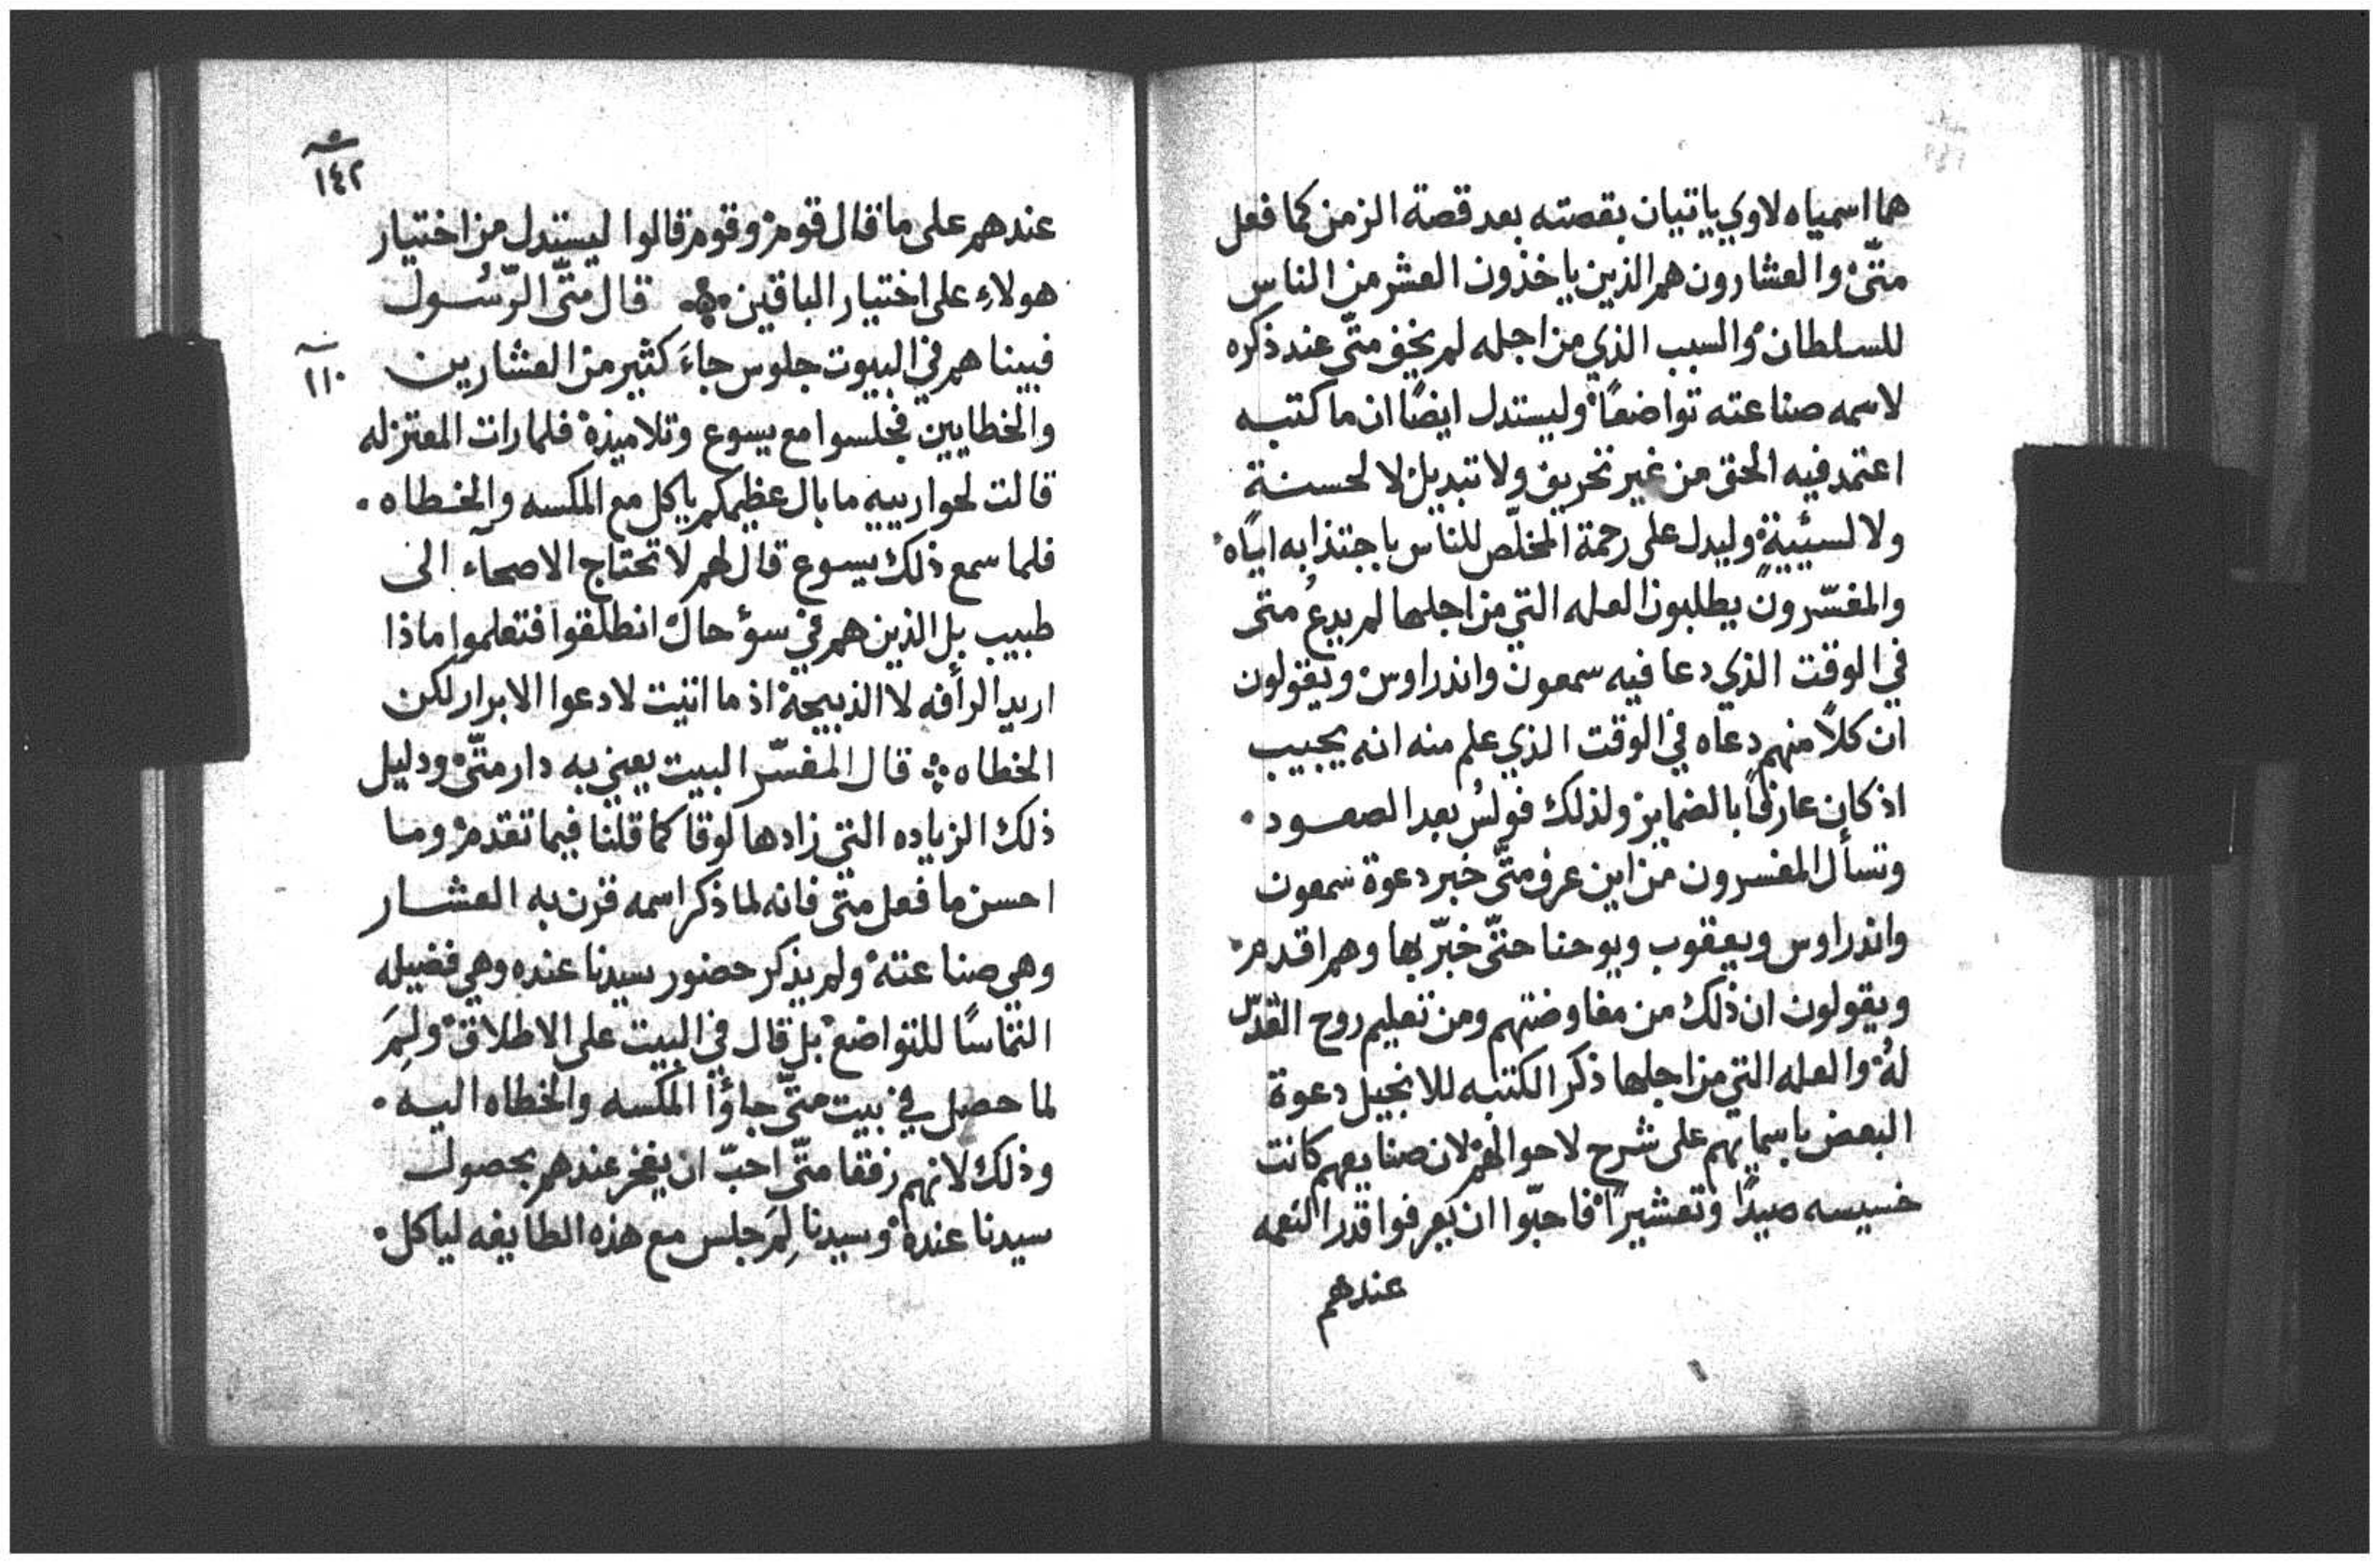 هما اسمياه لاوي ياتيان بقصته بعد قصة الزمن كما فعل
متّى والعشارون هم الذين ياخذون العشر من الناس
للسلطان والسبب الذي من اجله لم يخف متّى عند ذكره
لاسمه صناعته تواضعًا وليستدل ايضًا ان ما كتبه
اعتمد فيه الحق من غير تحريف ولا تبديل لا لحسنةٍ
ولا لسيّيةٍ وليدل على رحمة المخلّص للناس باجتذابه اياه
والمفسّرون يطلبون العله التي من اجلها لم يدعُ متى
في الوقت الذي دعا فيه سمعون واندراوس ويقولون
ان كلًا منهم دعاه في الوقت الذي علم منه انه يجيب
اذ كان عارفًا بالضماير ولذلك فولس بعد الصعود
وتسأل المفسرون من اين عرف متّى خبر دعوة سمعون
واندراوس ويعقوب ويوحنا حتّى خبّر بها وهم اقدم
ويقولون ان ذلك من مفاوضتهم ومن تعليم روح القدّس
لهُ والعله التي من اجلها ذكر الكتبه للانجيل دعوة
البعض باسمايهم على شرح لاحوالهم لان صنايعهم كانت
خسيسه صيدًا وتعشيرًا فاحبّوا ان يعرفوا قدر النعمه
عندهم
١٤٢
عندهم على ما قال قوم وقوم قالوا ليستدل من اختيار
هولاء على اختيار الباقين قال متّى الرّسُول
فبينا هم في البيوت جلوس جاءَ كثير من العشارين
١١٠
والخطايين فجلسوا مع يسوع وتلاميذه فلما رات المعتزله
قالت لحوارييه ما بال عظيمكم ياكل مع المكسه والخطاه
فلما سمع ذلك يسوع قال لهم لا تحتاج الاصحآء الى
طبيب بل الذين هم في سؤ حال انطلقوا فتعلموا ماذا
اريد الرأفه لا الذبيحة اذ ما اتيت لادعوا الابرار لكن
الخطاه قال المفسّر البيت يعني به دار متّى ودليل
ذلك الزياده التي زادها لوقا كما قلنا فيما تقدم وما
احسن ما فعل متّى فانه لما ذكر اسمه قرن به العشار
وهي صناعته ولم يذكر حضور سيدنا عنده وهي فضيله
التماسًا للتواضع بل قال في البيت على الاطلاق ولِمَ
لما حصل في بيت متّى جاؤا المكسه والخطاه اليه
وذلك لانهم رفقا متّى احبّ ان يفخر عندهم بحصول
سيدنا عنده وسيدنا لِمَ جلس مع هذه الطايفه لياكل